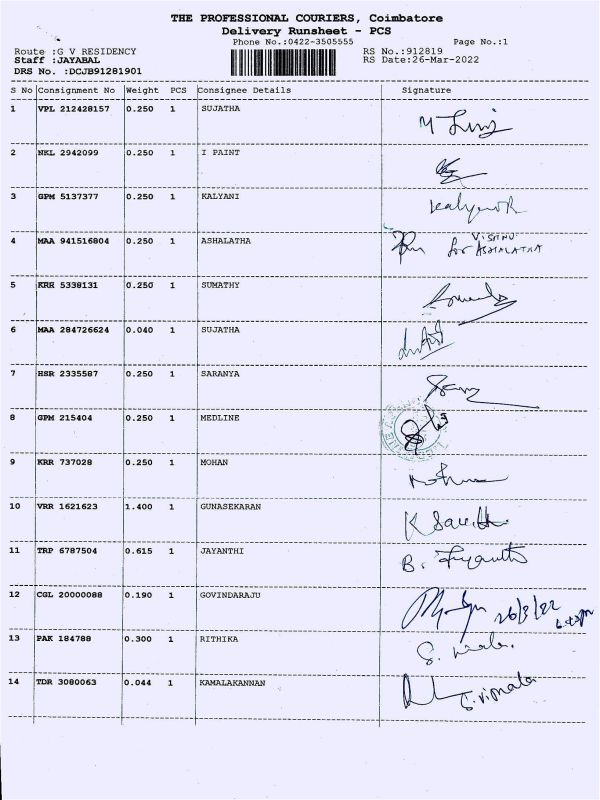 THE PROFESSIONAL COURIERS, Coimbatore
Delivery Runsheet - PCS
Phone No.:0422-3505555 Page No.:1
Route :G V RESIDENCY RS No.:912819
Staff :JAYABAL RS Date:26-Mar-2022
DRS No. :DCJB91281901
S No Consignment No Weight PCS Consignee Details Signature
1 VPL 212428157 0.250 1 SUJATHA
2 NKL 2942099 0.250 1 I PAINT
3 GPM 5137377 0.250 1 KALYANI
4 MAA 941516804 0.250 1 ASHALATHA VISHNU
for ASHALATHA
5 KRR 5338131 0.250 1 SUMATHY
6 MAA 284726624 0.040 1 SUJATHA
7 HSR 2335587 0.250 1 SARANYA
8 GPM 215404 0.250 1 MEDLINE
9 KRR 737028 0.250 1 MOHAN
10 VRR 1621623 1.400 1 GUNASEKARAN
11 TRP 6787504 0.615 1 JAYANTHI
12 CGL 20000088 0.190 1 GOVINDARAJU 26/3/22
13 PAK 184788 0.300 1 RITHIKA
14 TDR 3080063 0.044 1 KAMALAKANNAN S. vimala